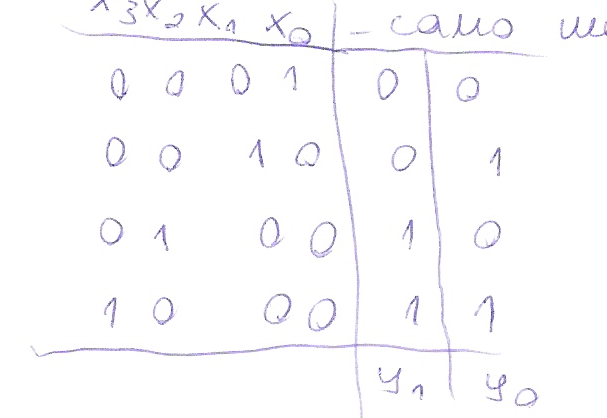 x₃ x₂ x₁ x₀ - само
0 0 0 1 0 0
0 0 1 0 0 1
0 1 0 0 1 0
1 0 0 0 1 1
y₁ y₀